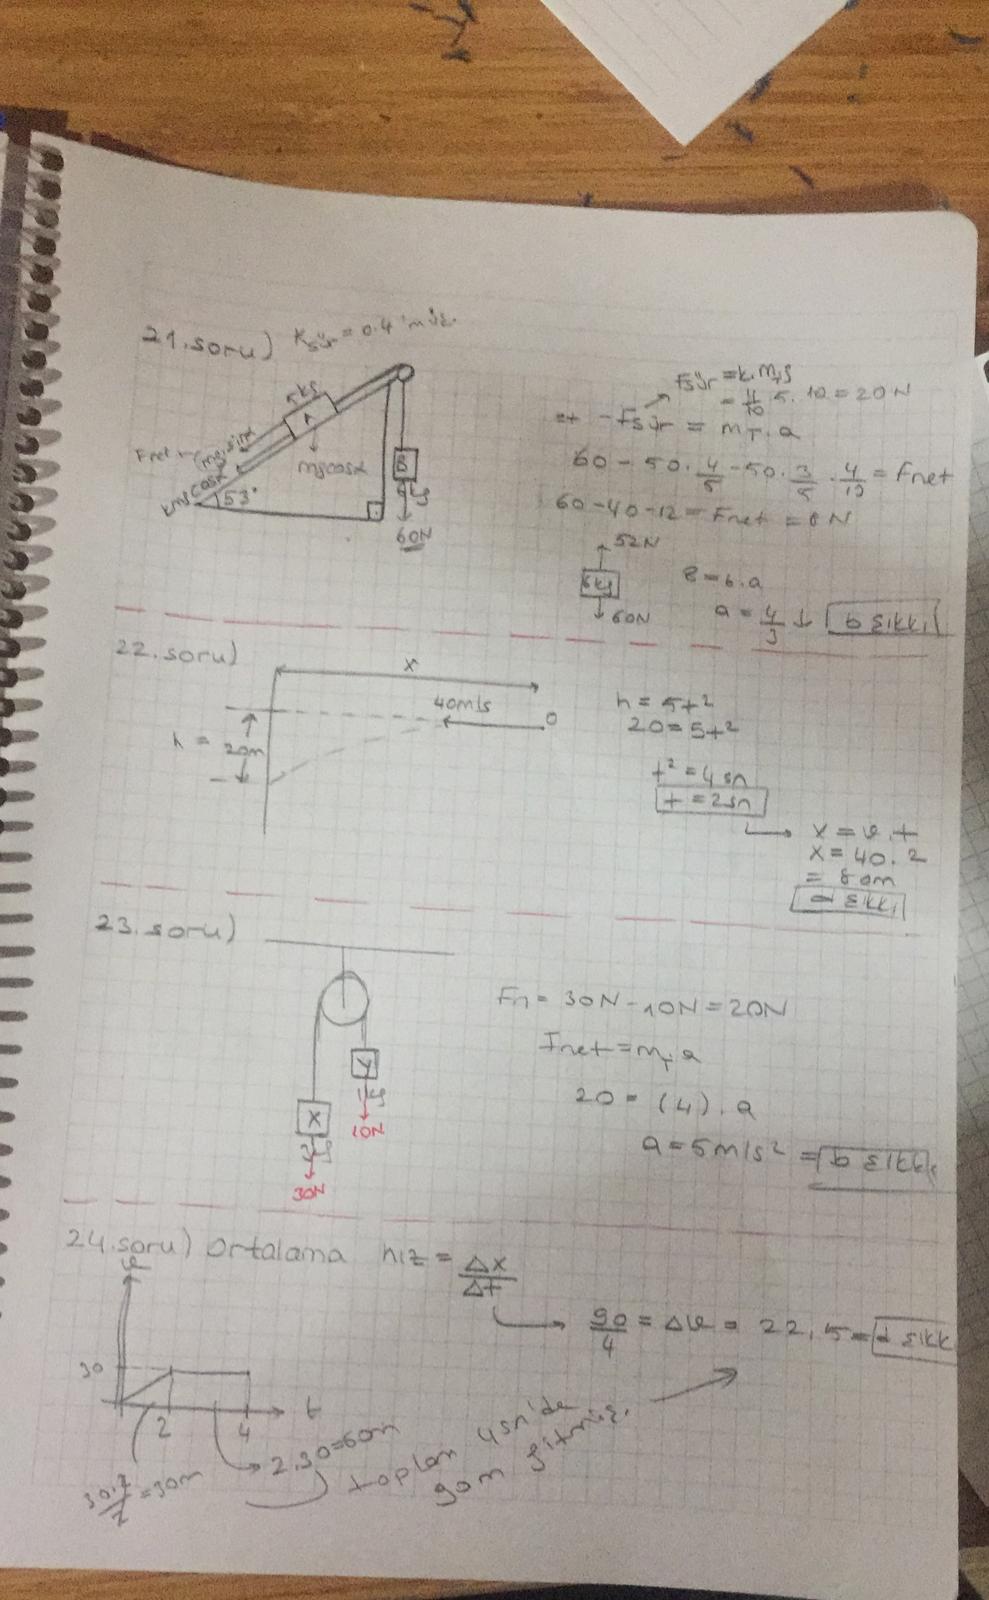 21.soru) Ksür = 0.4
5kg
A
Fnet
mgsinα
mgcosα
kmgcosα
53°
B
60N
Fsür = k.m.g
= 4/10 . 5 . 10 = 20N
-Fsür = mT.a
60 - 50.4/5 - 50.3/5.4/10 = Fnet
60-40-12 = Fnet = 8N
52N
6kg
60N
8=6.a
a = 4/3 ↓ b şıkkı
22.soru)
x
40m/s
h = 20m
h = 5t²
20=5t²
t²=4sn
t=2sn
x = v.t
x = 40.2
= 80m
d şıkkı
23.soru)
X
30N
Y
10N
Fn = 30N - 10N = 20N
Fnet = mT.a
20 = (4).a
a = 5m/s² = b şıkkı
24.soru) Ortalama hız = Δx/Δt
90/4 = Δv = 22,5 = d şıkk
v
30
2
4
t
30.2/2 = 30m
2.30=60m
toplam 4sn'de
90m gitmiş.